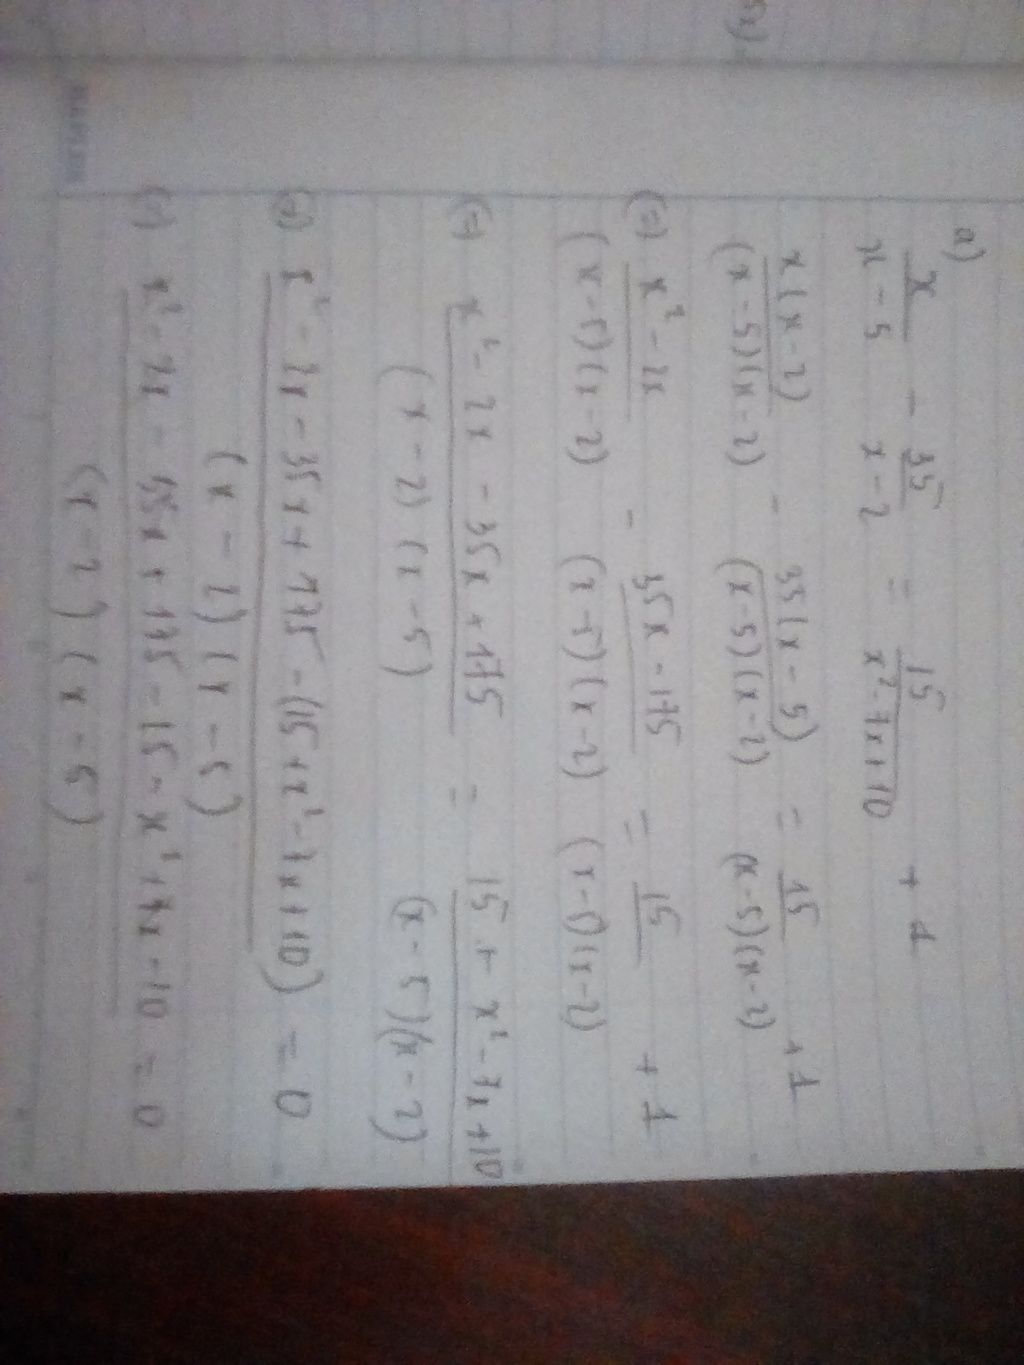 a)
x/(x-5) - 35/(x-2) = 15/(x²-7x+10) + 1
x(x-2)/((x-5)(x-2)) - 35(x-5)/((x-5)(x-2)) = 15/((x-5)(x-2)) + 1
(=) (x²-2x)/((x-5)(x-2)) - (35x-175)/((x-5)(x-2)) = 15/((x-5)(x-2)) + 1
(=) (x²-2x-35x+175)/((x-2)(x-5)) = (15+x²-7x+10)/((x-5)(x-2))
(=) (x²-2x-35x+175-(15+x²-7x+10))/((x-2)(x-5)) = 0
(=) (x²-2x-35x+175-15-x²+7x-10)/((x-2)(x-5)) = 0